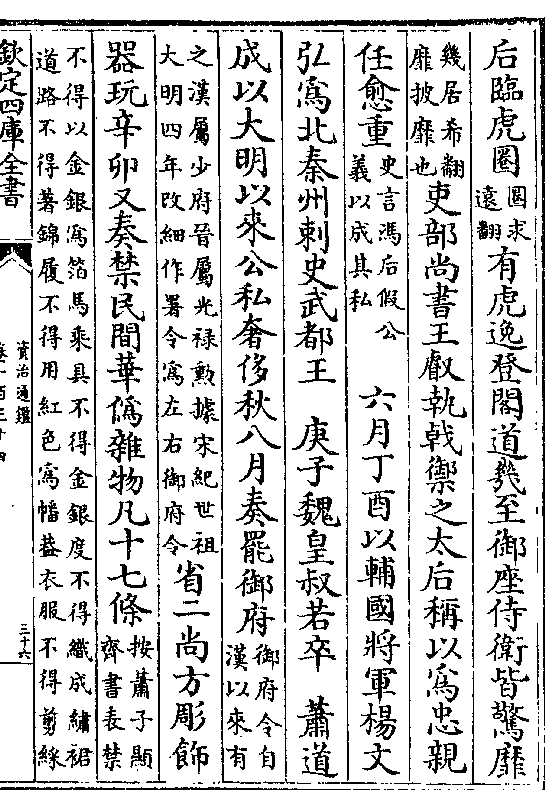 后臨虎圈圈求遠翻有虎逸登閣道幾至御座侍衛皆驚靡
幾居希翻靡披靡也吏部尚書王叡執戟禦之太后稱以爲忠親
任愈重史言馮后假公義以成其私　六月丁酉以輔國將軍楊文
弘爲北秦州刺史武都王　庚子魏皇叔若卒　蕭道
成以大明以來公私奢侈秋八月奏罷御府御府令自漢以來有
之漢屬少府晉屬光祿勲據宋紀世祖大明四年改細作署令爲左右御府令省二尚方彫飾
器玩辛卯又奏禁民間華僞雜物凡十七條按蕭子顯齊書表禁
不得以金銀爲箔馬乘具不得金銀度不得織成繡裙道路不得著錦履不得用紅色爲幡葢衣服不得剪綵
欽定四庫全書
資治通鑑
卷一百三十四
三十六